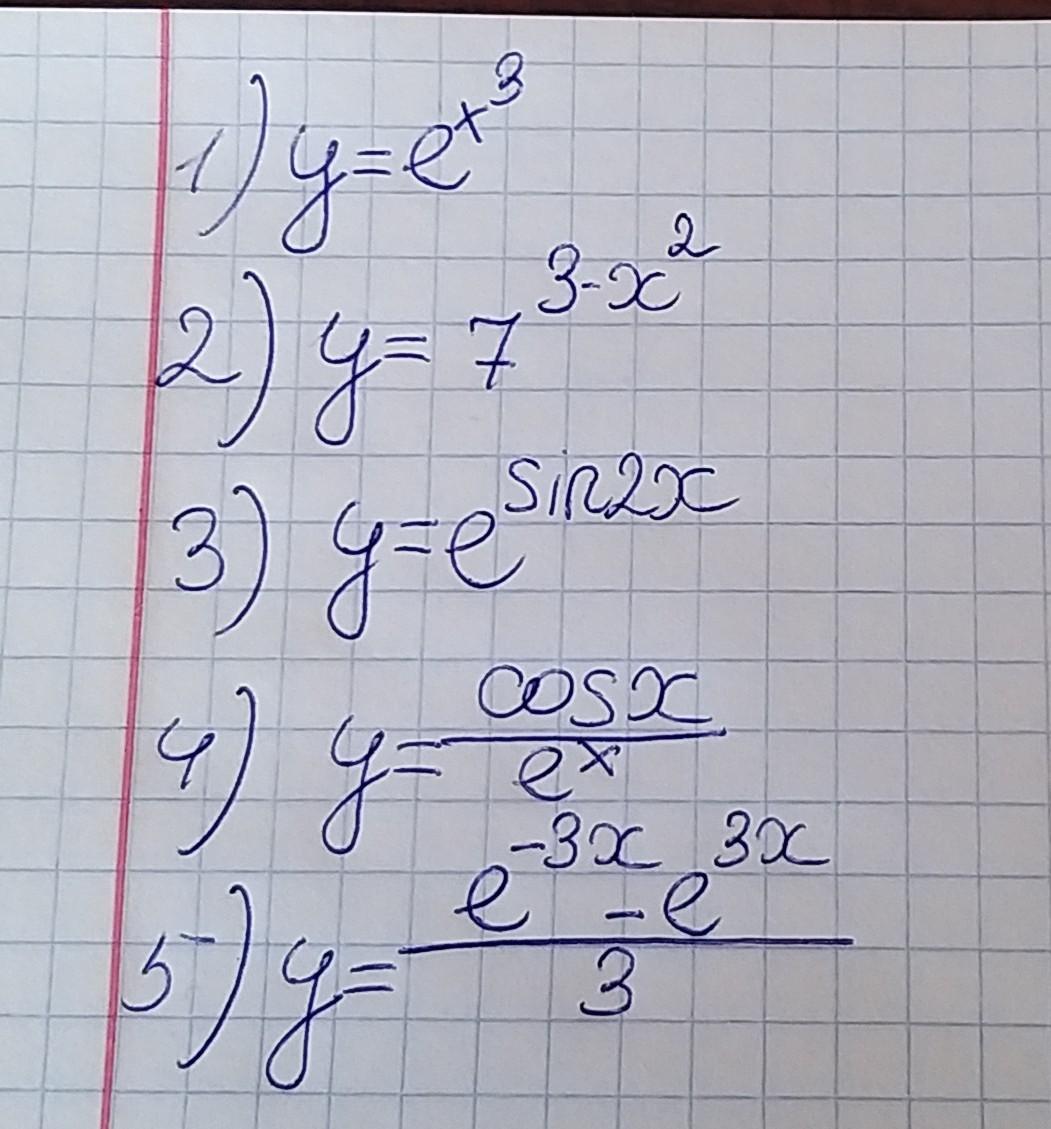 1) y = e^{x^3}
2) y = 7^{3-x^2}
3) y = e^{sin2x}
4) y = \frac{cosx}{e^x}
5) y = \frac{e^{-3x} - e^{3x}}{3}